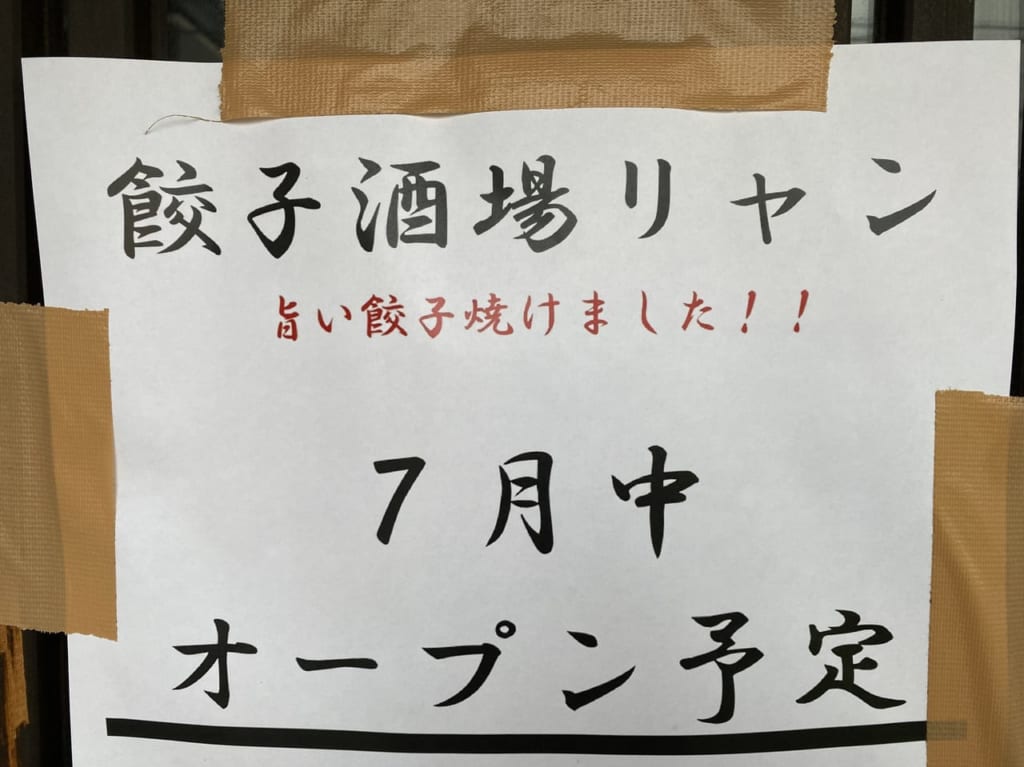 餃子酒場リャン
旨い餃子焼けました！！
7月中
オープン予定